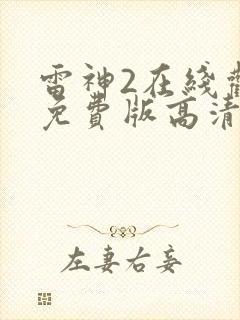 雷神2在綫觀
免費版高清
左妻右妾